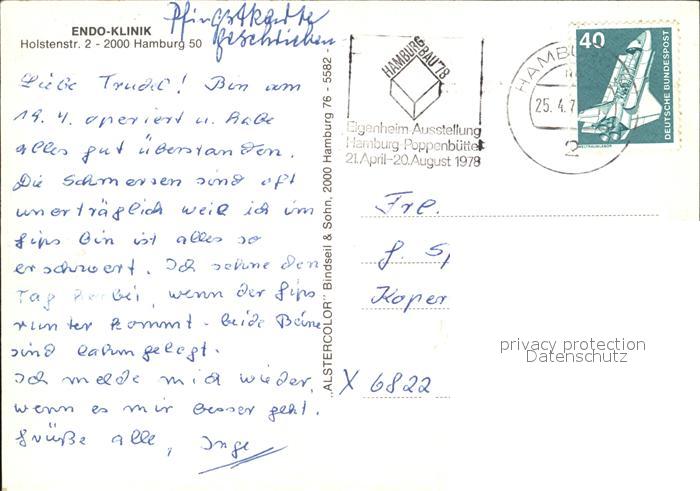 Pfingstkarte
geschrieben
ENDO-KLINIK
Holstenstr. 2 - 2000 Hamburg 50
Liebe Trudel! Bin am
19. 4. operiert u. habe
alles gut überstanden.
Die Schmerzen sind oft
unerträglich weil ich im
Gips bin ist alles so
erschwert. Ich sehne den
Tag herbei, wenn der Gips
runter kommt. beide Beine
sind lahmgelegt.
Ich melde mich wieder,
wenn es mir besser geht.
Grüße alle, Inge
„ALSTERCOLOR" Bindseil & Sohn, 2000 Hamburg 76 - 5582 -
HAMBURG
BAU '78
Eigenheim-Ausstellung
Hamburg-Poppenbüttel
21.April-20.August 1978
HAMBU
25. 4. 7
2
40
DEUTSCHE BUNDESPOST
WELTRAUMLABOR
Frl.
G. Sp
Koper
X 6822
privacy protection
Datenschutz